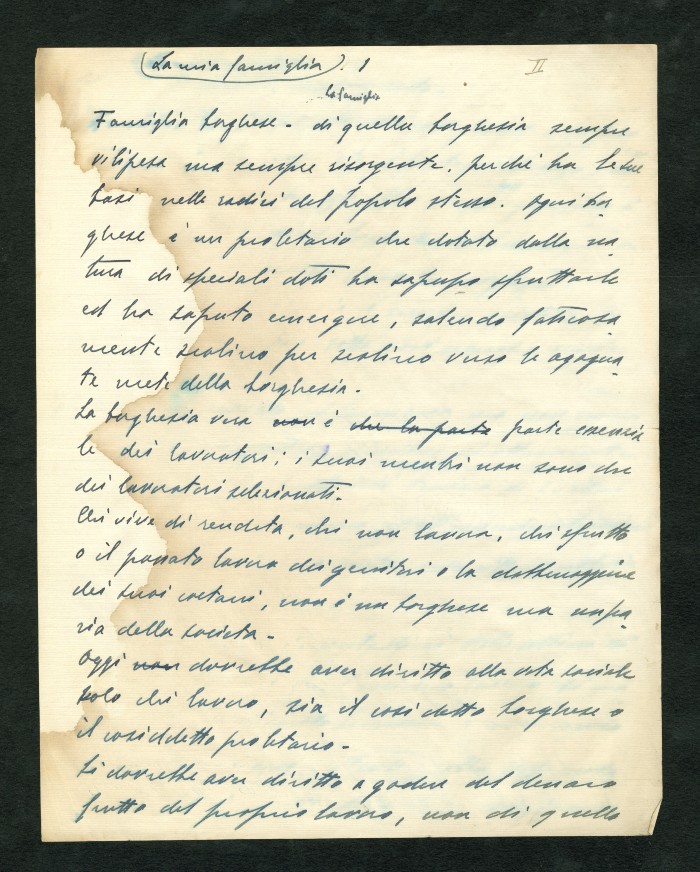 (La mia famiglia). 1
II
La famiglia
Famiglia borghese - di quella borghesia sempre
vilipesa ma sempre risorgente, perché ha le sue
basi nelle radici del popolo stesso. Ogni bor
ghese è un proletario che dotato dalla na
tura di speciali doti ha saputo sfruttarle
ed ha saputo emergere, salendo faticosa
mente scalino per scalino verso le agogna
te mete della borghesia.
La borghesia vera non è che la parte parte essenzia
le dei lavoratori; i suoi membri non sono che
dei lavoratori selezionati.
Chi vive di rendita, chi non lavora, chi sfrutta
o il passato lavoro dei genitori o la
dei suoi coetani, non è un borghese ma un pa
ria della società -
Oggi non dovrebbe aver diritto alla vita sociale
solo chi lavora, sia il cosi detto borghese o
il cosiddetto proletario -
Si dovrebbe aver diritto a godere del denaro
frutto del proprio lavoro, non di quello